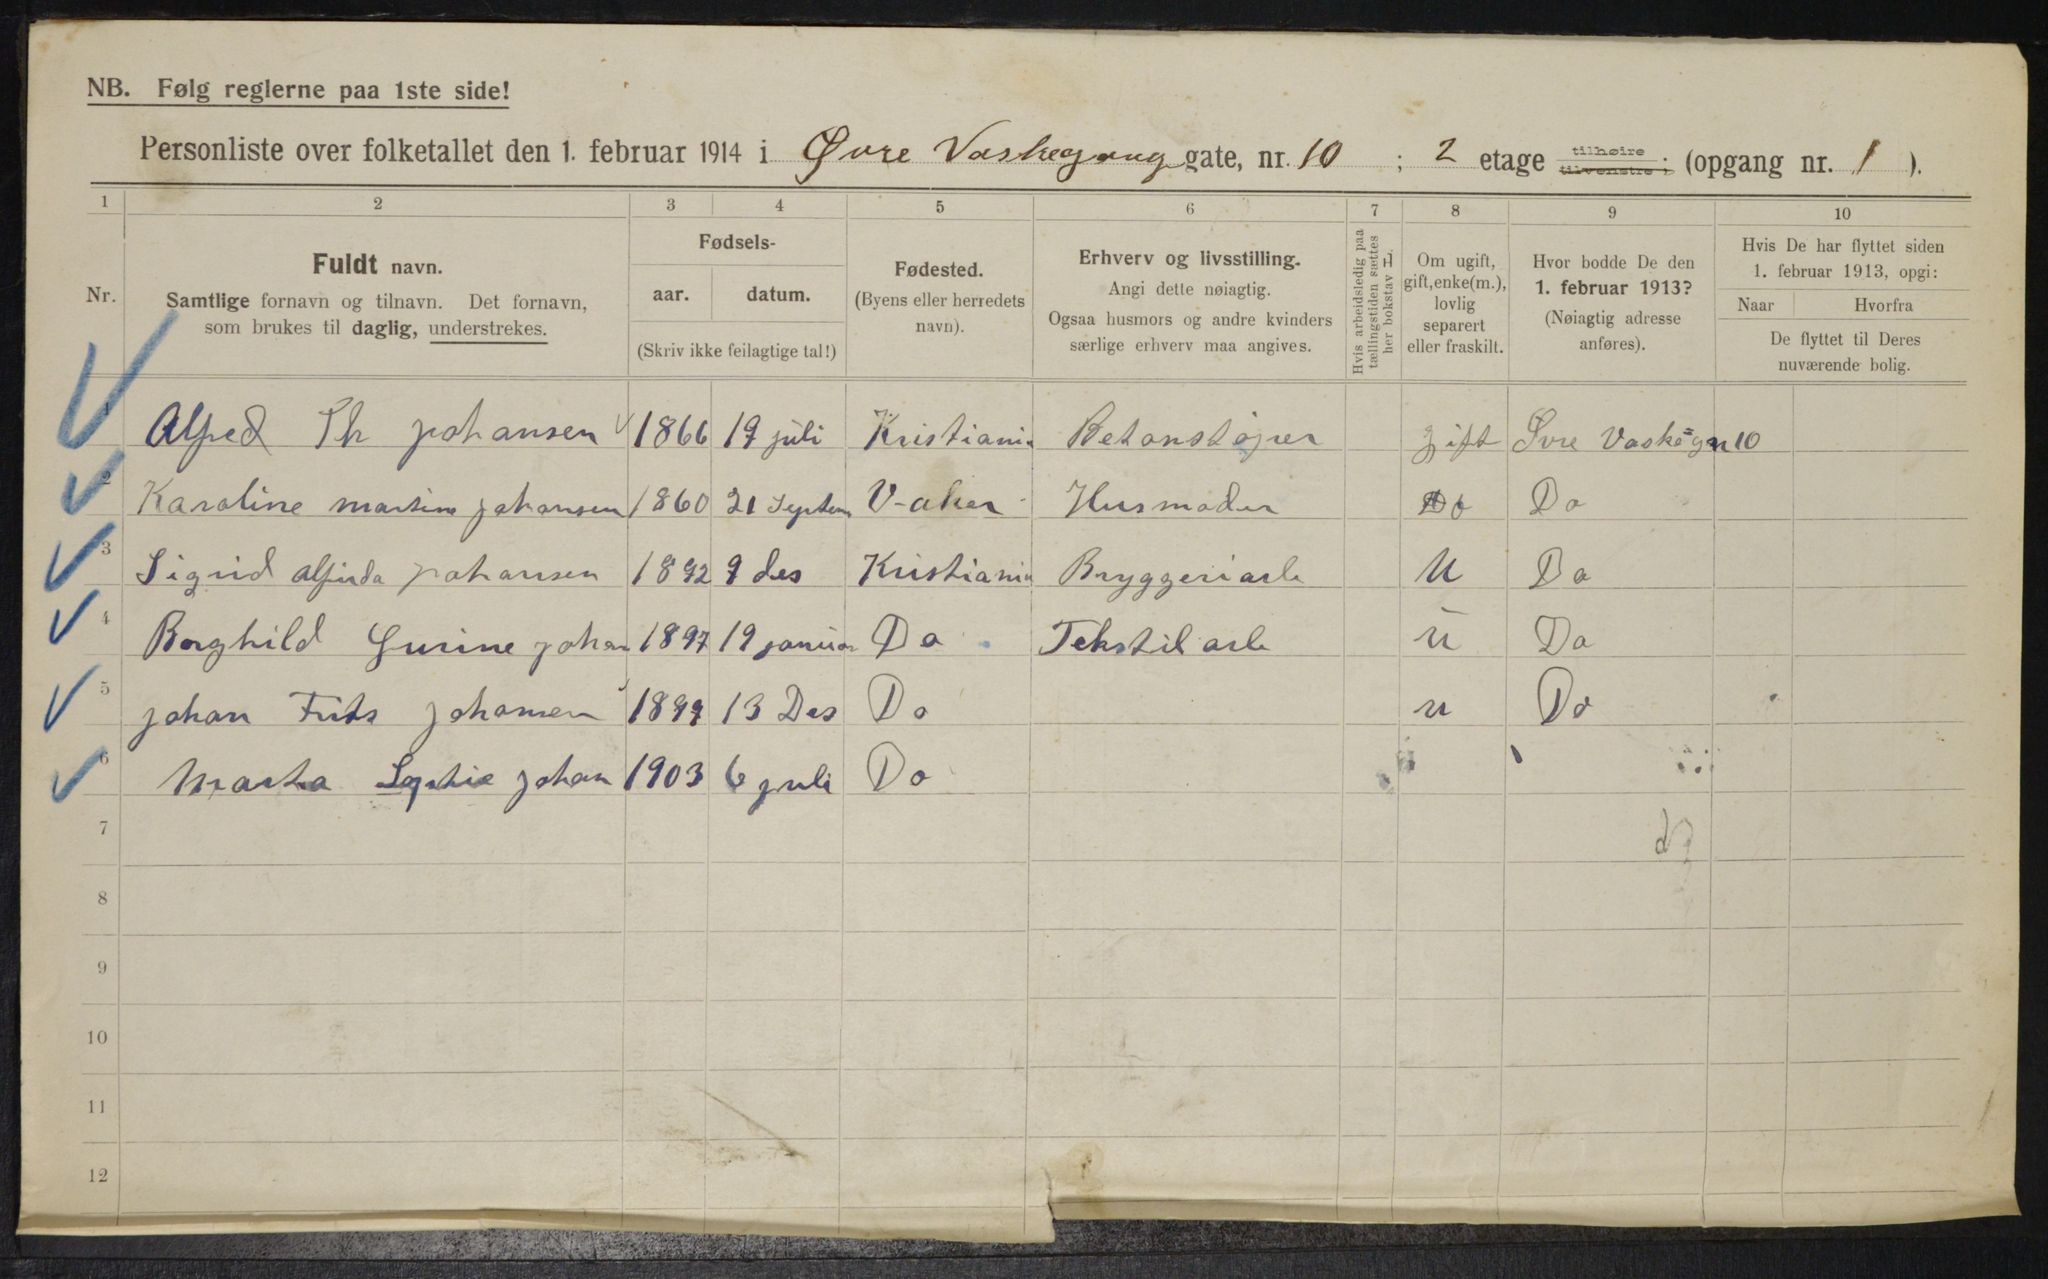 NB. Følg reglerne paa 1ste side!
Personliste over folketallet den 1. februar 1914 i Øvre Vaskegang gate, nr. 10 ; 2 etage tilhøire tilvenstre ; (opgang nr. 1 ).
1 2 3 4 5 6 7 8 9 10
Nr.
Fuldt navn.
Samtlige fornavn og tilnavn. Det fornavn,
som brukes til daglig, understrekes.
Fødsels-
aar. datum.
(Skriv ikke feilagtige tal!)
Fødested.
(Byens eller herredets
navn).
Erhverv og livsstilling.
Angi dette nøiagtig.
Ogsaa husmors og andre kvinders
særlige erhverv maa angives.
Hvis arbeidsledig paa
tællingstiden sættes
her bokstav L.
Om ugift,
gift, enke(m.),
lovlig
separert
eller fraskilt.
Hvor bodde De den
1. februar 1913?
(Nøiagtig adresse
anføres).
Hvis De har flyttet siden
1. februar 1913, opgi:
Naar Hvorfra
De flyttet til Deres
nuværende bolig.
1 Alfred Th johansen 1866 19 juli Kristiania Betonstøper gift Øvre Vaskeg 10
2 Karoline martine johansen 1860 21 Septem V-aker Husmoder Do Do
3 Sigrid Alfrida johansen 1892 9 des Kristiania Bryggeriarb U Do
4 Borghild Gurine johan 1897 19 januar Do Tekstilarb u Do
5 johan Frits johansen 1899 13 Des Do u Do
6 Marta Sophie johan 1903 6 juli Do
7
8
9
10
11
12